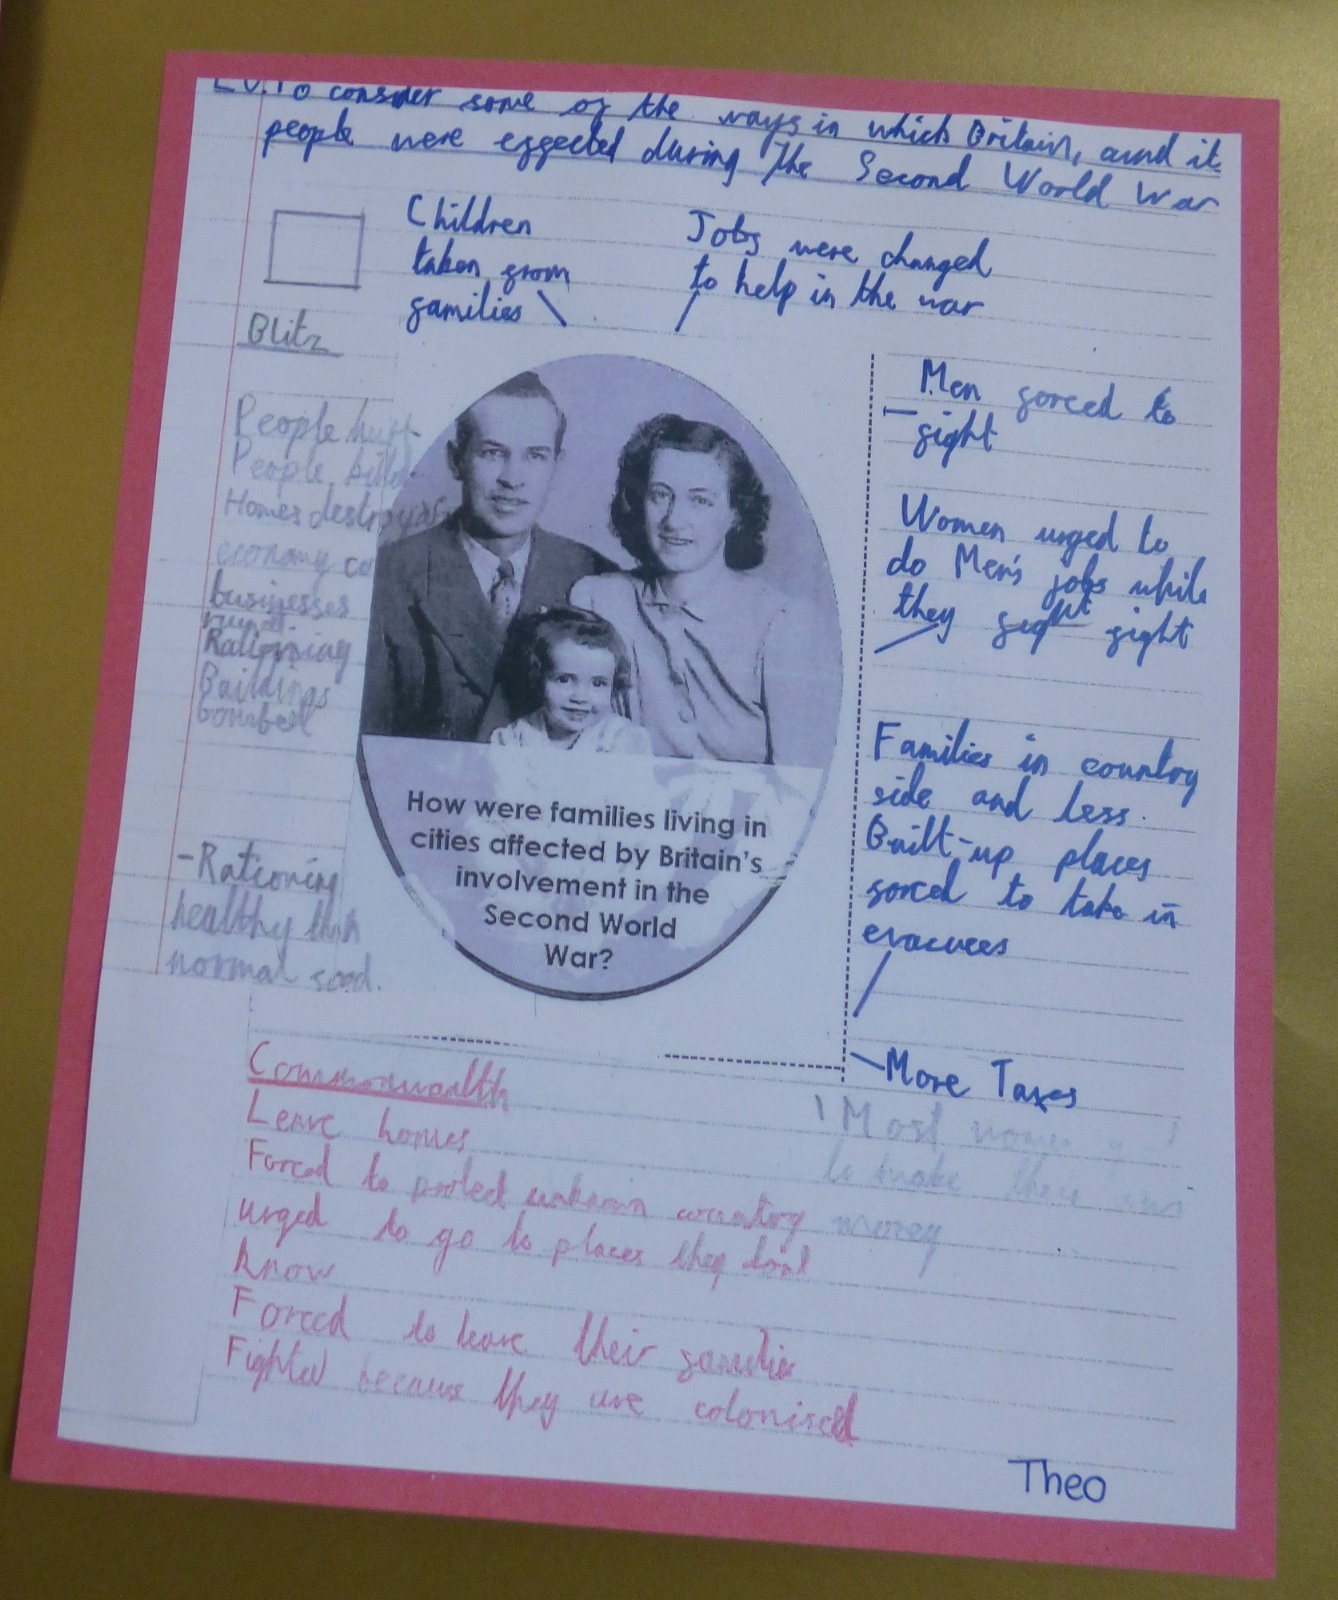 To consider some of the ways in which Britain, and it
people were effected during the Second World War
Children
taken from
families
Jobs were changed
to help in the war
Blitz
People hurt
People
Homes destroyed
economy
businesses
ruined.
Rationing
Buildings
bombed
-Rationing
healthy than
normal food.
Men forced to
fight
Women urged to
do Men's jobs while
they fight
Families in country
side and less
Built-up places
forced to take in
evacuees
More Taxes
Most
to make their own
money
How were families living in
cities affected by Britain's
involvement in the
Second World
War?
Commonwealth
Leave homes
Forced to protect unknown country
urged to go to places they don't
know
Forced to leave their families
Fighted because they are colonised
Theo